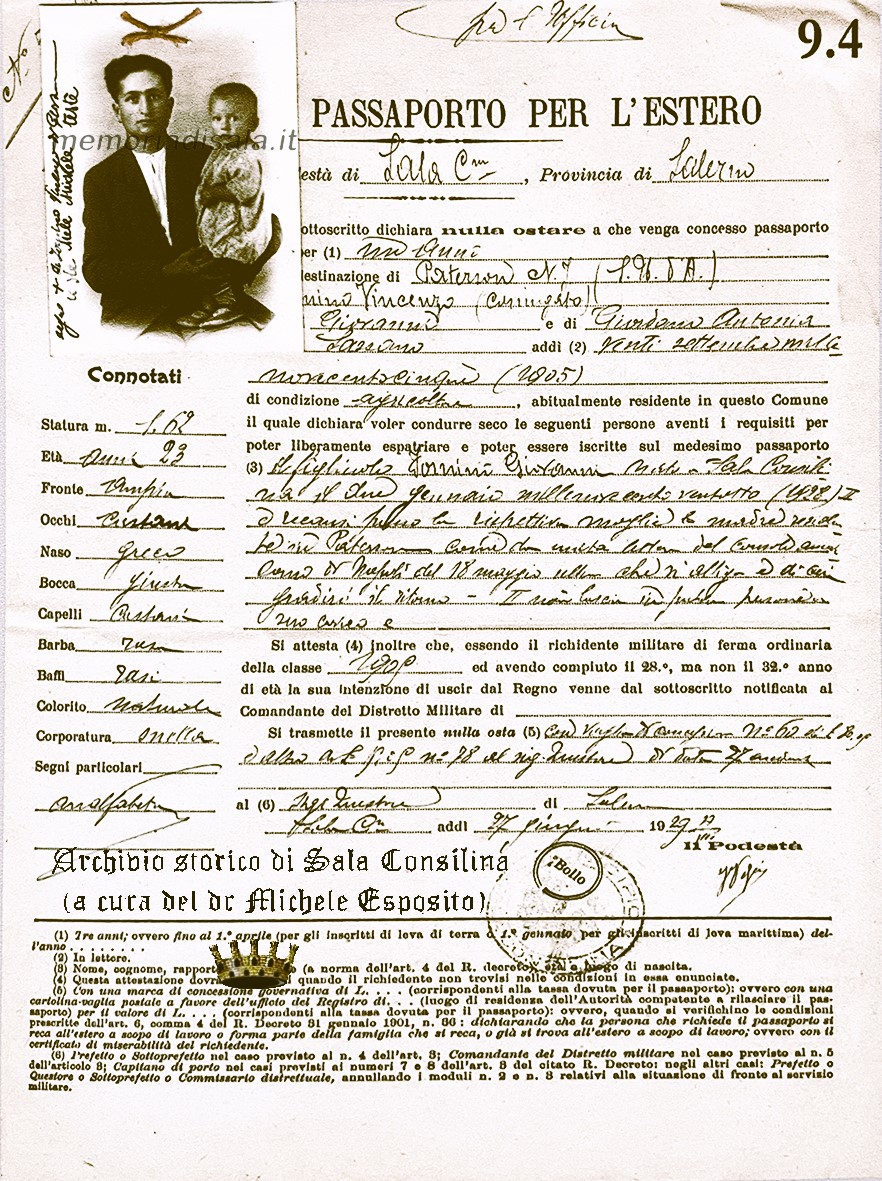 pel l'Ufficio
9.4
PASSAPORTO PER L'ESTERO
memoriadisala.it
està di Sala Cna, Provincia di Salerno
ottoscritto dichiara nulla ostare a che venga concesso passaporto
er (1) un anni
estinazione di Paterson N. J (S. U. d'A.)
nino Vincenzo (coniugato)
Giovanni e di Giordano Antonia
addì (2) venti settembre mille
Connotati
novecentocinque (1905)
di condizione agricoltore, abitualmente residente in questo Comune
Statura m. 1.62
il quale dichiara voler condurre seco le seguenti persone aventi i requisiti per
poter liberamente espatriare e poter essere iscritte sul medesimo passaporto
Età anni 23
(3) il figliuolo Giovanni nato a Sala Consili
Fronte ampia
na il due gennaio millenovecento ventotto (1928)
Occhi castani
a recarsi presso la rispettiva moglie e madre
Naso greco
te in Paterson come da unita lettera del Console
Bocca giusta
cano di Napoli del 18 maggio che si alliga e di cui
Capelli castani
il ritorno - non lascia persone a
suo carico e
Barba rasa
Si attesta (4) inoltre che, essendo il richidente militare di ferma ordinaria
Baffi rasi
della classe 1905 ed avendo compiuto il 28.º, ma non il 32.º anno
di età la sua intenzione di uscir dal Regno venne dal sottoscritto notificata al
Colorito naturale
Comandante del Distretto Militare di
Corporatura snella
Si trasmette il presente nulla osta (5) con vaglia di n° 60
Segni particolari
n° 78 al sig. Questore di data 27
analfabeta
al (6) Sig. Questore di Salerno
Sala Cna addì 27 giugno 1929
Il Podestà
Archivio storico di Sala Consilina
(a cura del dr Michele Esposito)
Bollo
(1) Tre anni; ovvero fino al 1.º aprile (per gli inscritti di leva di terra o 1.º gennaio per gli inscritti di leva marittima) del-
l'anno . . . . . . . . .
(2) In lettere.
(3) Nome, cognome, rapporto (a norma dell'art. 4 del R. decreto), età e luogo di nascita.
(4) Questa attestazione dovrà quando il richiedente non trovisi nelle condizioni in essa enunciate.
(5) Con una marca di concessione governativa di L. . . . (corrispondenti alla tassa dovuta per il passaporto): ovvero con una
cartolina-vaglia postale a favore dell'ufficio del Registro di. . . (luogo di residenza dell'Autorità competente a rilasciare il pas-
saporto) per il valore di L. . . . (corrispondenti alla tassa dovuta per il passaporto): ovvero, quando si verifichino le condizioni
prescritte dell'art. 6, comma 4 del R. Decreto 31 gennaio 1901, n. 36 : dichiarando che la persona che richiede il passaporto si
reca all'estero a scopo di lavoro o forma parte della famiglia che si reca, o già si trova all'estero a scopo di lavoro; ovvero con il
certificato di miserabilità del richiedente.
(6) Prefetto o Sottoprefetto nel caso previsto al n. 4 dell'art. 3; Comandante del Distretto militare nel caso previsto al n. 5
dell'articolo 3; Capitano di porto nei casi previsti ai numeri 7 e 8 dell'art. 3 del citato R. Decreto: negli altri casi: Prefetto o
Questore o Sottoprefetto o Commissario distrettuale, annullando i moduli n. 2 e n. 3 relativi alla situazione di fronte al servizio
militare.